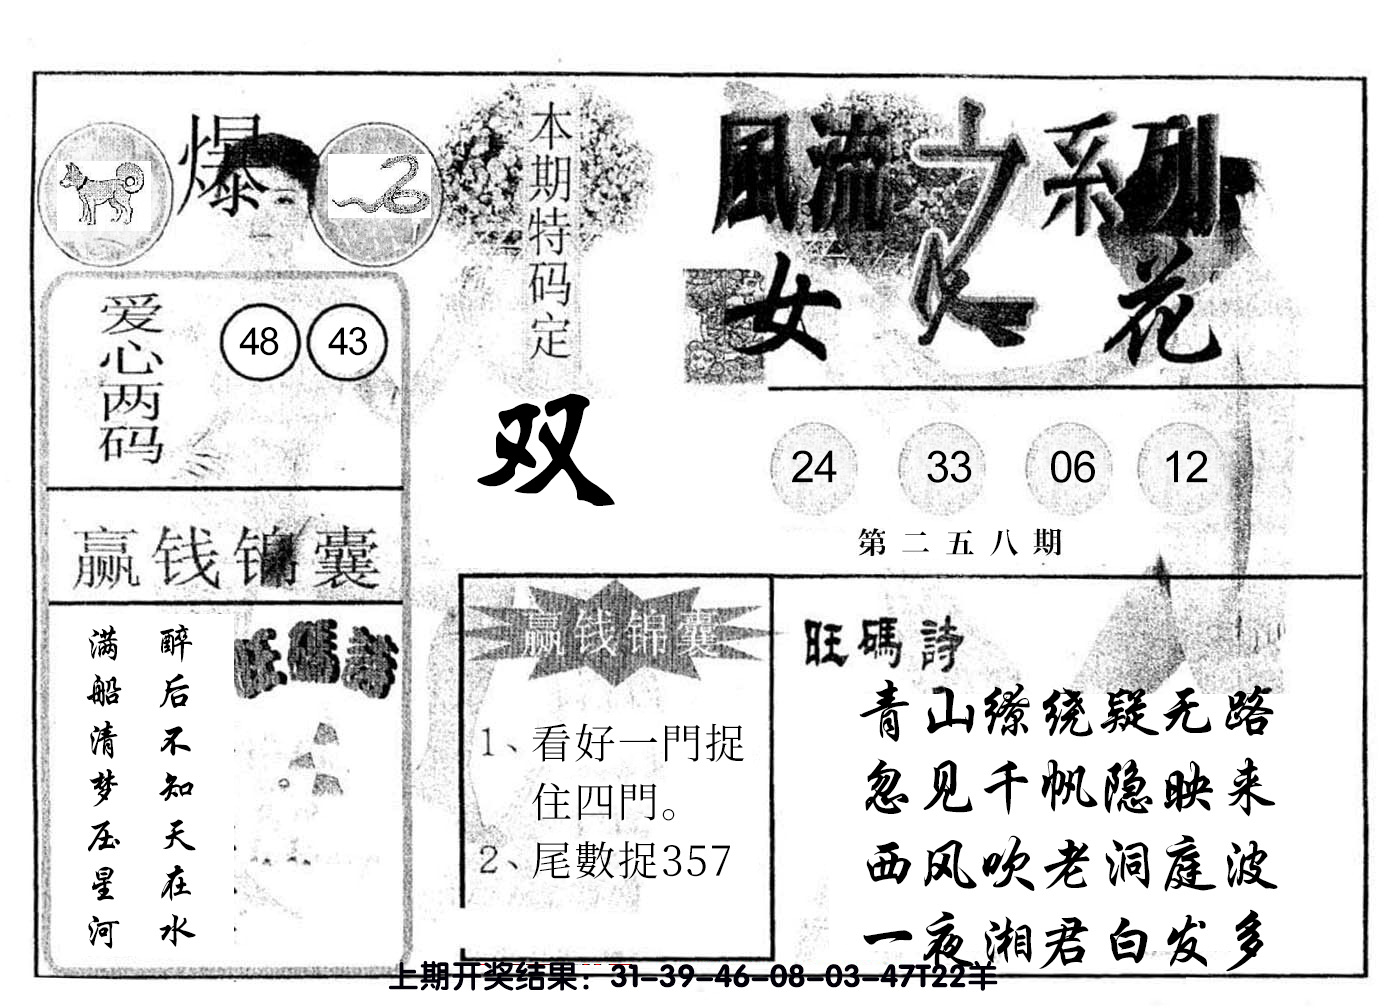 爆
本期特码定
双
風流之系列
女人花
爱心两码
48 43
24 33 06 12
第二五八期
赢钱锦囊
醉后不知天在水
满船清梦压星河
旺碼詩
赢钱锦囊
1、看好一門捉
住四門。
2、尾數捉357
旺碼詩
青山缭绕疑无路
忽见千帆隐映来
西风吹老洞庭波
一夜湘君白发多
上期开奖结果：31-39-46-08-03-47T22羊